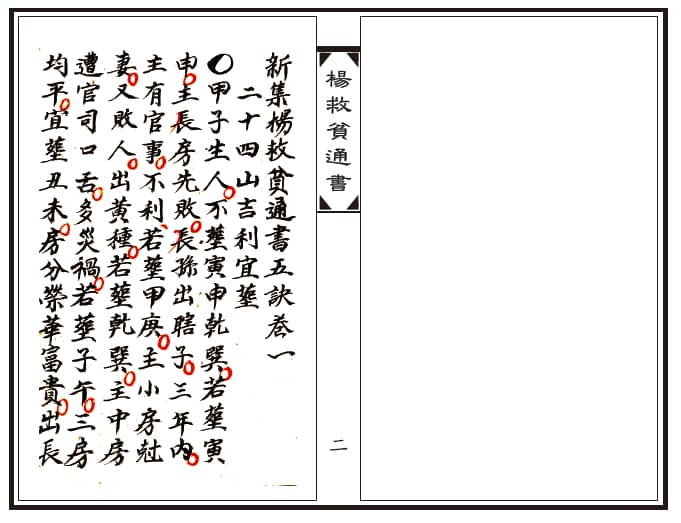 新集楊救貧通書五訣卷一
二十四山吉利宜塟
〇甲子生人不塟寅申乾巽若塟寅
申主長房先敗長孫出瞎子三年內
主有官事不利若塟甲庚主小房尅
妻又敗人出黃種若塟乾巽主中房
遭官司口舌多災禍若塟子午三房
均平宜塟丑未房分榮華富貴出長
楊救貧通書
二